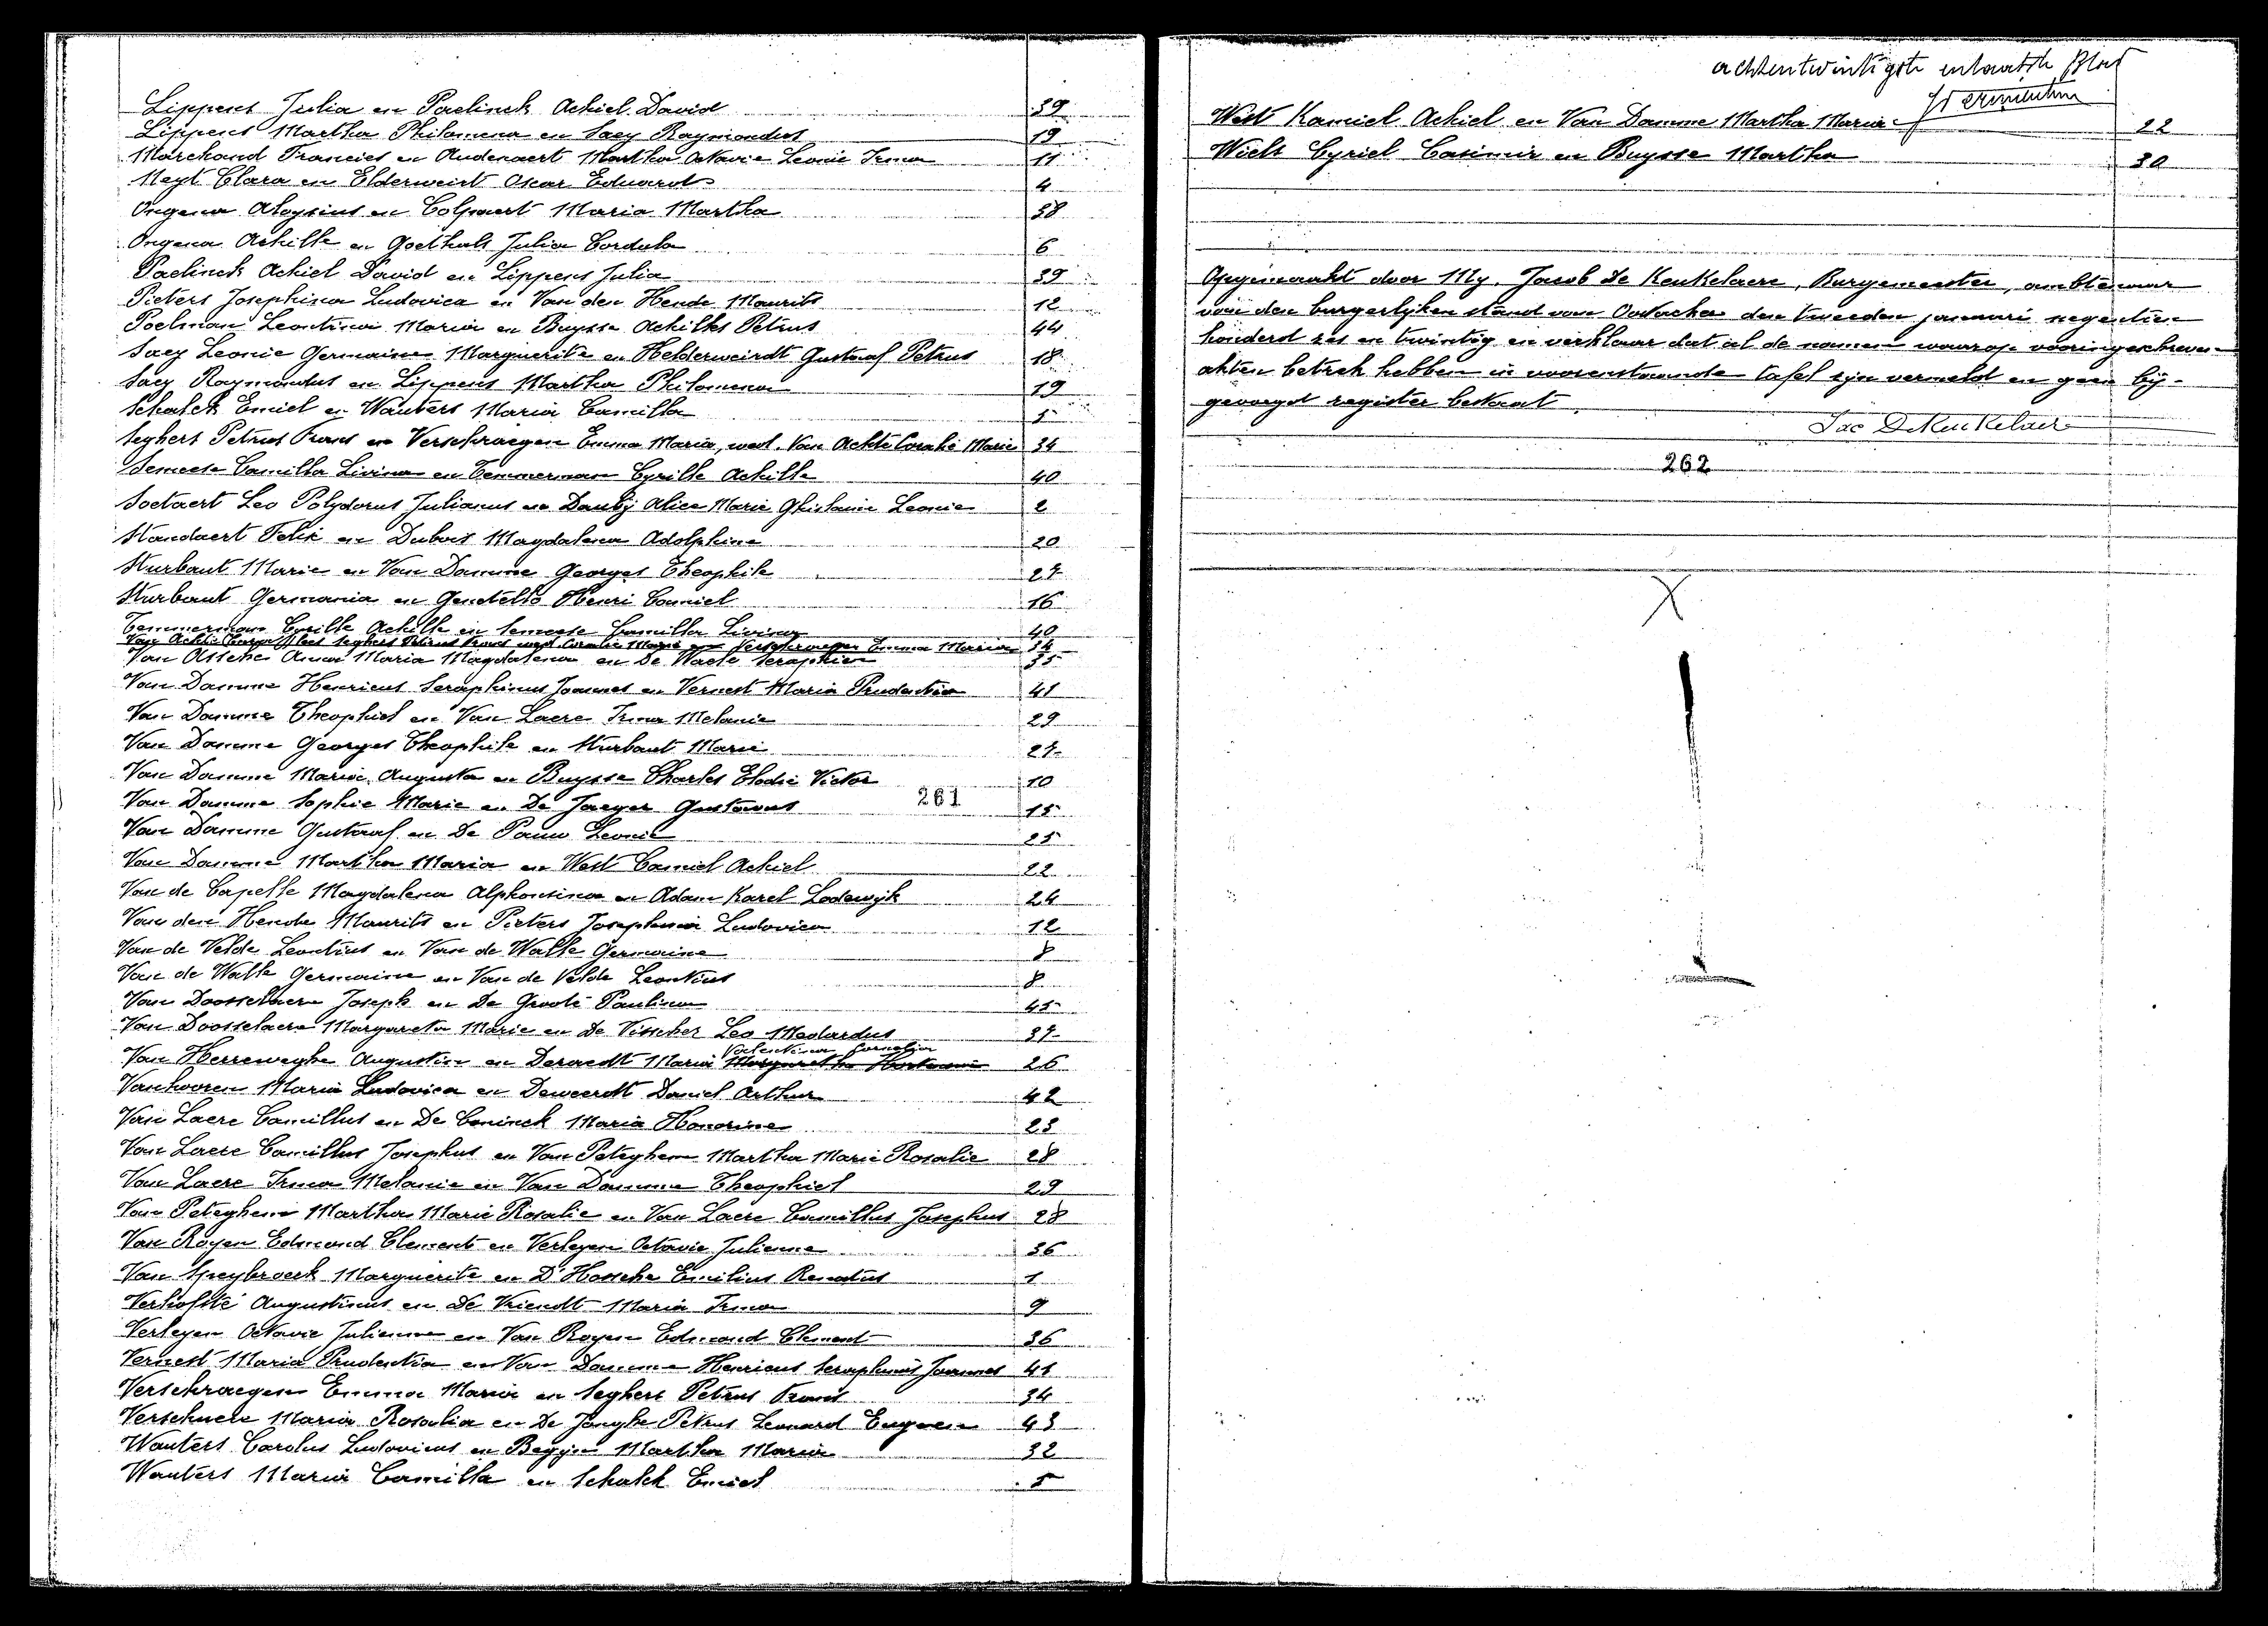 Lippens Julia en Paelinck Achiel David 39
Lippens Martha Philomena en Saey Raymondus 19
Marchand Francies en Audenaert Martha Octavie Leonie Irma 11
Neyt Clara en Elderweirt Oscar Eduard 4
Ongena Aloysius en Colpaert Maria Martha 38
Ongena Achille en Goethals Julia Cordula 6
Paelinck Achiel David en Lippens Julia 39
Pieters Josephina Ludovica en Van den Hende Maurits 12
Poelman Leontina Maria en Buysse Achilles Petrus 44
Saey Leonie Germaine Marguerite en Helderweirdt Gustaaf Petrus 18
Saey Raymondus en Lippens Martha Philomena 19
Schalck Emiel en Wauters Maria Camilla 5
Seghers Petrus Frans en Verschraegen Emma Maria, wed. Van Achte Coralie Marie 34
Semeese Camilla Livina en Temmerman Cyrille Achille 40
Soetaert Leo Polydorus Julianus en Dauby Alice Marie Ghislaine Leonie 2
Standaert Felix en Dubois Magdalena Adolphine 20
Sturbaut Marie en Van Damme Georges Theophile 27
Sturbaut Germania en Gentello Henri Camiel 16
Temmerman Cyrille Achille en Semeese Camilla Livina 40
Van Achte Seghers Petrus Frans wed Coralie Marie en Verschraegen Emma Maria 34
Van Assche Anna Maria Magdalena en De Waele Seraphien 35
Van Damme Henricus Seraphinus Joannes en Vernest Maria Prudentia 41
Van Damme Theophiel en Van Laere Irma Melanie 29
Van Damme Georges Theophile en Sturbaut Marie 27
Van Damme Maria Augusta en Buysse Charles Elodie Victor 10
Van Damme Sophie Marie en De Jaeger Gustavus 15
261
Van Damme Gustaaf en De Pauw Leonie 25
Van Damme Martha Maria en West Camiel Achiel 22
Van de Capelle Magdalena Alphonsina en Adam Karel Lodewyk 24
Van den Hende Maurits en Pieters Josephina Ludovica 12
Van de Velde Leontius en Van de Walle Germaine 8
Van de Walle Germaine en Van de Velde Leontius 8
Van Doosselaere Joseph en De Groote Paulina 45
Van Doosselaere Margareta Marie en De Visscher Leo Medardus 37
Valentina Cornelia
Van Herreweghe Augustin en Deraedt Maria 26
Vanhooren Maria Ludovica en Deweerdt Daniel Arthur 42
Van Laere Camillus en De Coninck Maria Honorine 23
Van Laere Camillus Josephus en Van Peteghem Martha Marie Rosalie 28
Van Laere Irma Melanie en Van Damme Theophiel 29
Van Peteghem Martha Marie Rosalie en Van Laere Camillus Josephus 28
Van Royen Edmond Clement en Verleyen Octavie Julienne 36
Van Speybroeck Marguerite en D'Hossche Emilius Renatus 1
Verhofsté Augustinus en De Vriendt Maria Irma 9
Verleyen Octavie Julienne en Van Royen Edmond Clement 36
Vernest Maria Prudentia en Van Damme Henricus Seraphinus Joannes 41
Verschraegen Emma Maria en Seghers Petrus Frans 34
Verschuere Maria Rosalia en De Jonghe Petrus Leonard Eugeen 43
Wauters Carolus Ludovicus en Beggin Martha Maria 32
Wauters Maria Camilla en Schalck Emiel 5
achtentwintigste enlaatste Blad
West Kamiel Achiel en Van Damme Martha Maria 22
Wiels Cyriel Casimir en Buysse Martha 30
Opgemaakt door My, Jacob De Keukelaere, Burgemeester, ambtenaar
van den burgerlyken stand van Oostacker den tweeden januari negentien
honderd zes en twintig en verklaar dat al de namen waarop vooringeschreven
akten betrek hebben in voorenstaande tafel zyn vermeld en geen by-
gevoegd register bestaat.
Jac DeKeukelaere
262